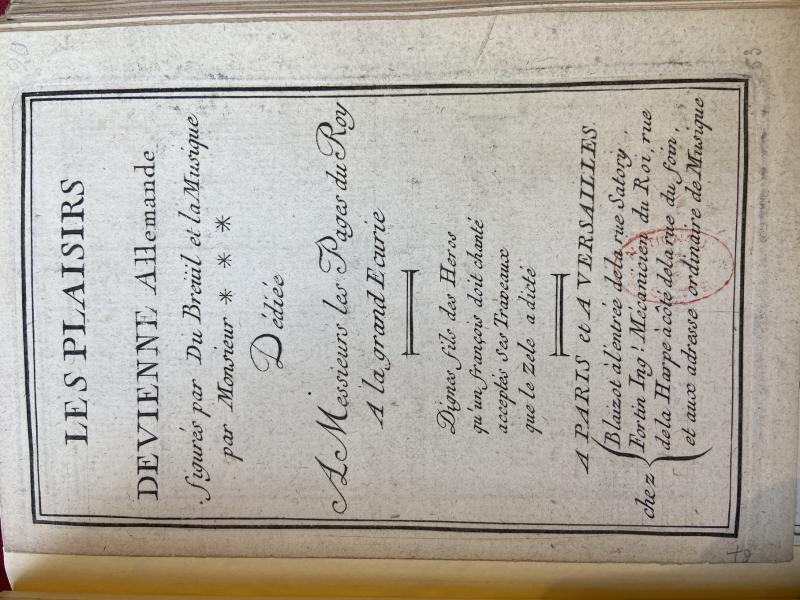 LES PLAISIRS
DEVIENNE Allemande
figurés par Du Breüil et la Musique
par Monsieur * * *
Dédiée
A Messieurs les Pages du Roy
A la grand Ecurie
Dignes fils des Heros
qu'un françois doit chanté
acceptés ses Traveaux
que le zele a dicté
A PARIS et A VERSAILLES
chez
Blaizot à l'entrée de la rue Satory.
Fortin Ingr. Mécanicien du Roi, rue
de la Harpe à côté de la rue du foin,
et aux adresse ordinaire de Musique